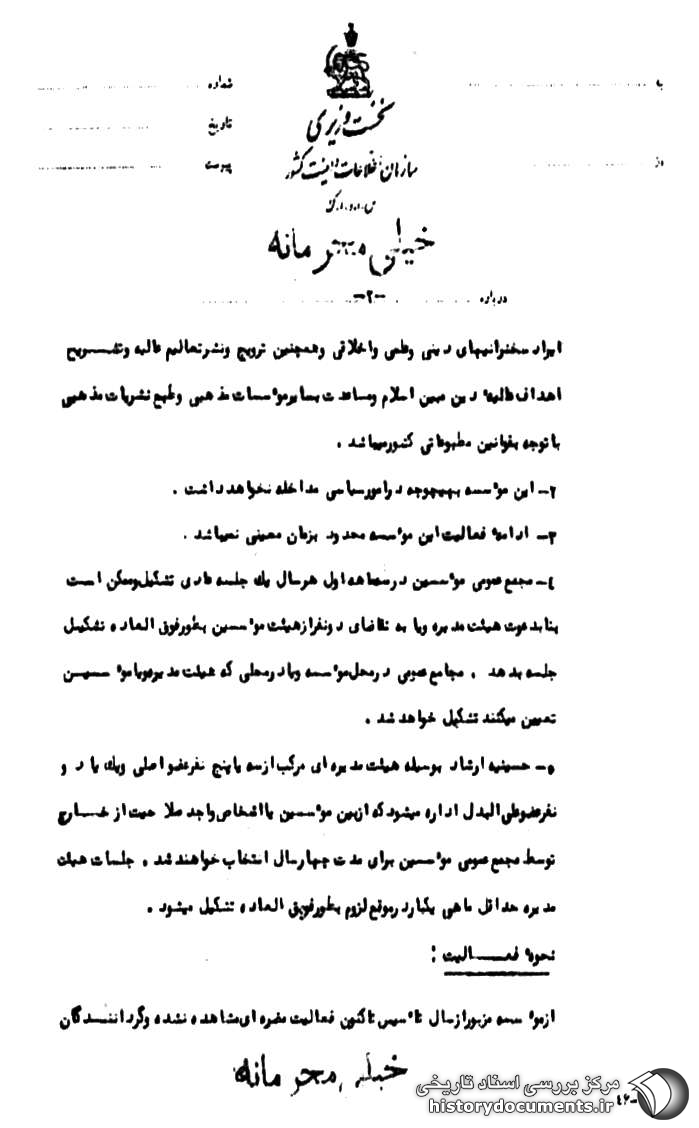 شماره
تاریخ
پیوست
به
از
نخست وزیری
سازمان اطلاعات و امنیت کشور
س.ا.و.ا.ک
خیلی محرمانه
درباره
-۲-
ایراد سخنرانیهای دینی وعلمی واخلاقی وهمچنین ترویج ونشرتعالیم عالیه وتشریح
اهداف عالیه دین مبین اسلام ومساعدت بسایرموٴسسات مذهبی وطبع نشریات مذهبی
باتوجه بقوانین مطبوعاتی کشورمیباشد .
۲- این موٴسسه بهیچوجه درامورسیاسی مداخله نخواهدداشت .
۳- ادامه فعالیت این موٴسسه محدود بزمان معینی نمیباشد .
٤- مجمع عمومی موٴسسین درسهماهه اول هرسال یك جلسه عادی تشکیل وممکن است
بنابدعوت هیئت مدیره ویا به تقاضای دونفرازهیئت موٴسسین بطورفوق العاده تشکیل
جلسه بدهد . مجامع عمومی درمحل موٴسسه ویادرمحلی که هیئت مدیره ویاموٴسسین
تعیین میکنند تشکیل خواهد شد .
۵- حسینیه ارشاد بوسیله هیئت مدیره ای مرکب ازسه یاپنج نفرعضواصلی ویك یا دو
نفرعضوعلی البدل اداره میشودکه ازبین موٴسسین یااشخاص واجدصلاحیت ازخارج
توسط مجمع عمومی موٴسسین برای مدت چهارسال انتخاب خواهندشد . جلسات هیئت
مدیره حداقل ماهی یکبار درموقع لزوم بطورفوق العاده تشکیل میشود .
نحوه فعالیت :
ازموٴسسه مزبورازسال تاٴسیس تاکنون فعالیت مضره ای مشاهده نشده وگردانندگان
خیلی محرمانه
مرکز بررسی اسناد تاریخی
historydocuments.ir